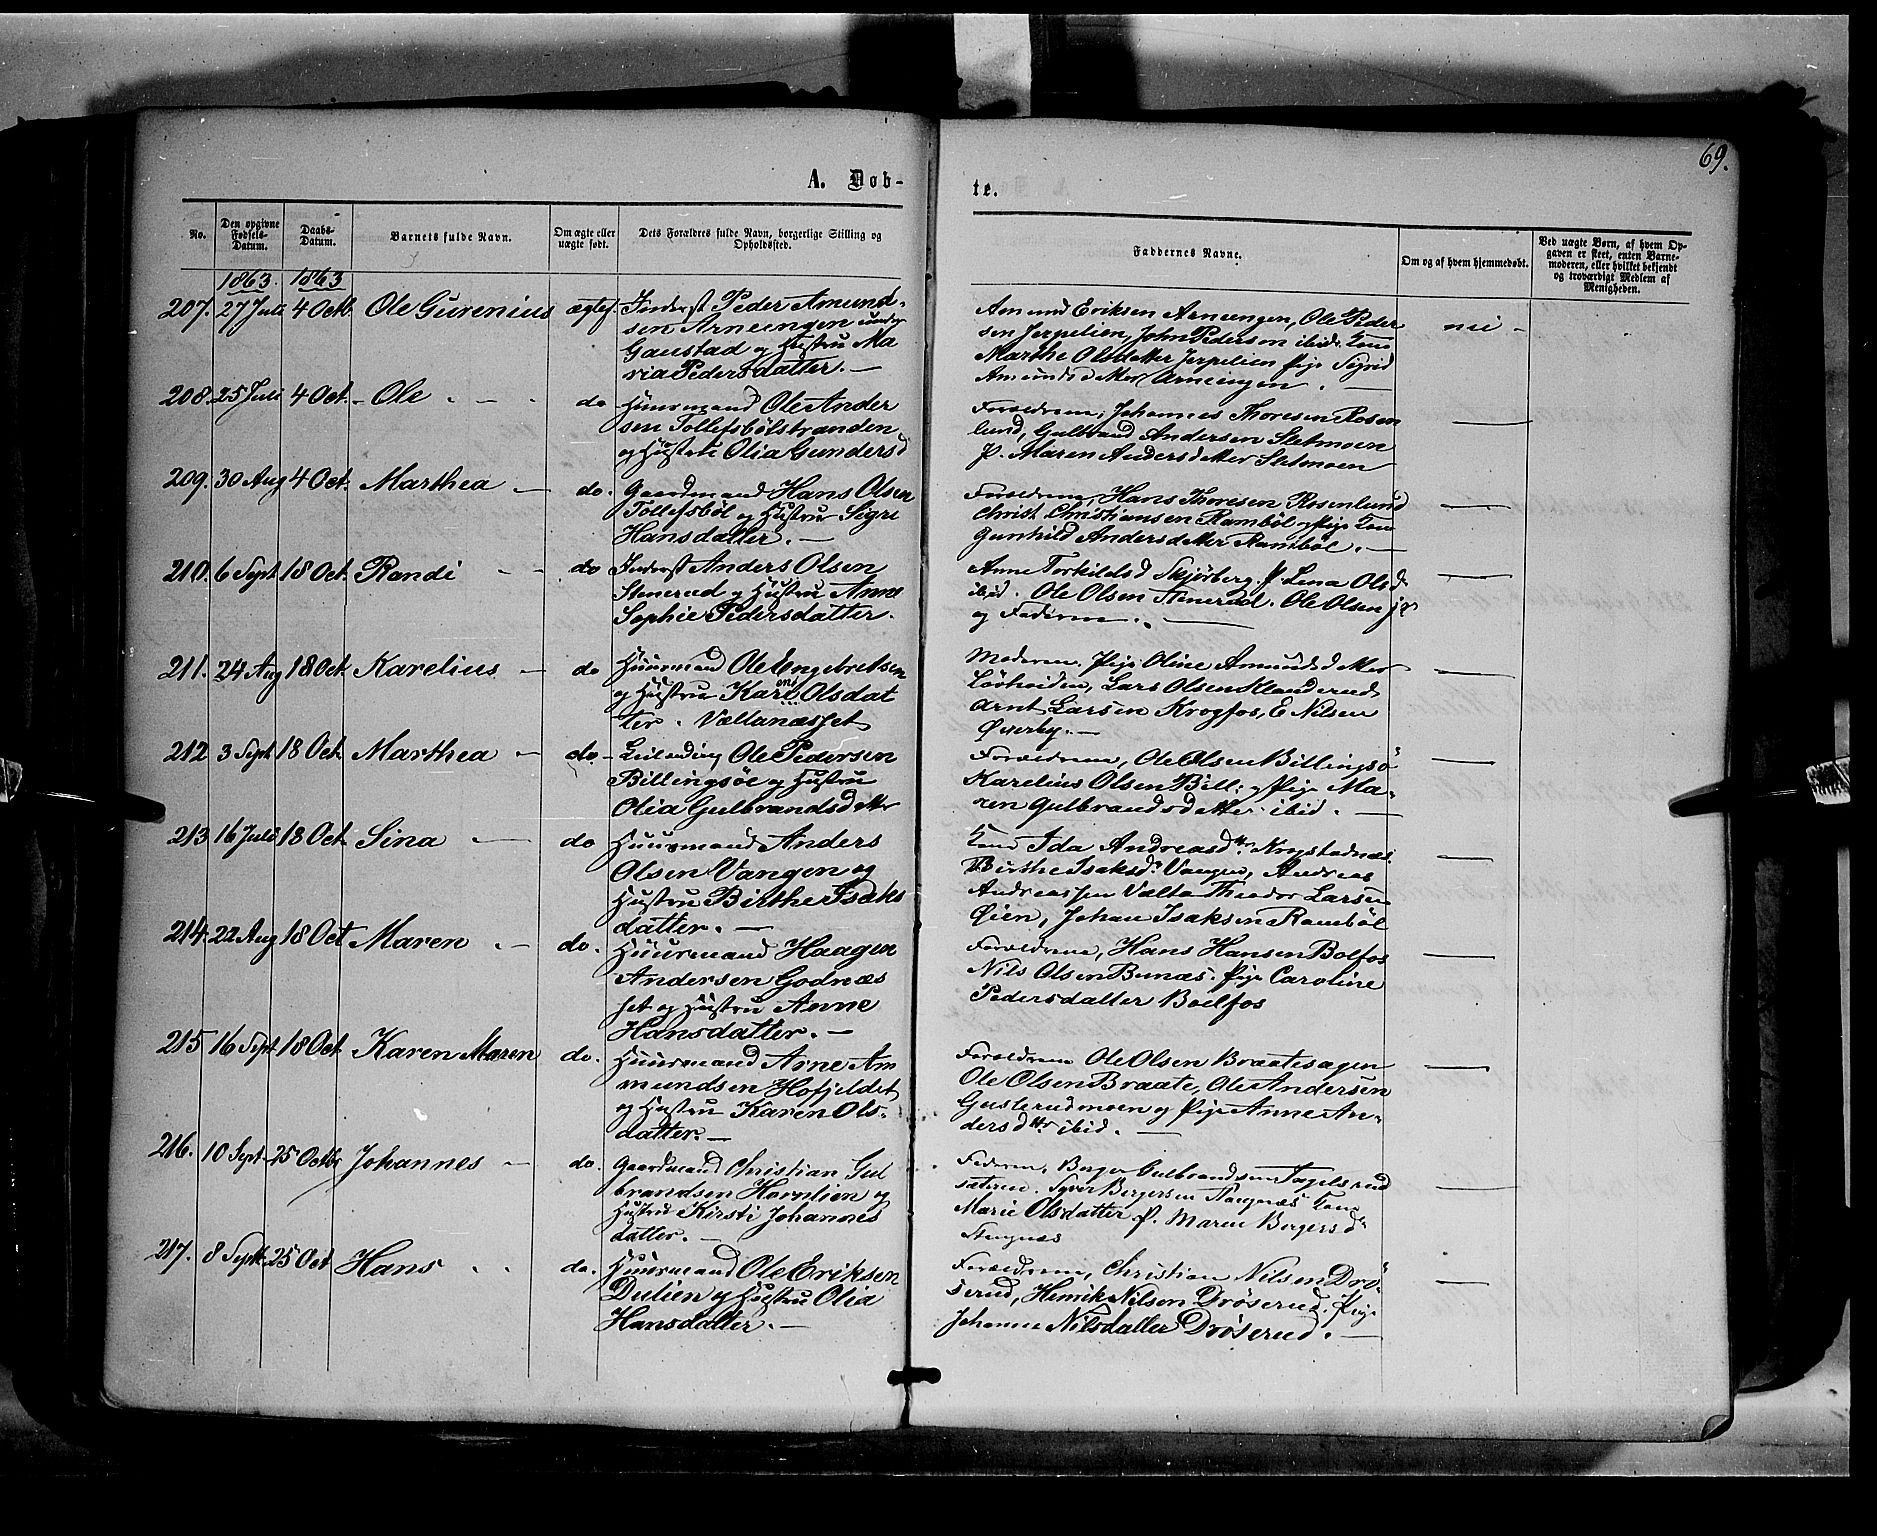 69.
A. Døb-
te.
No.
Den opgivne Fødsels-Datum.
Daabs-Datum.
Barnets fulde Navn.
Om ægte eller uægte født.
Dets Forældres fulde Navn, borgerlige Stilling og Opholdssted.
Faddernes Navne.
Om og af hvem hjemmedøbt.
Ved uægte Børn, af hvem Opgaven er skeet, enten Barnemoderen, eller hvilket bekjendt og troværdigt Medlem af Menigheden.
1863. 1863
207. 27 Juli 4 Octb. Ole Gurenius ægtef. Inderst Peder Amund-
sen Arneengen under
Gaustad og Hustru Ma
ria Pedersdatter. —
Amund Eriksen Arneengen, Ole Peder
sen Jerpelien, John Pedersen ibid. Kone
Marthe Olsdatter Jerpelien Pige Sigrid
Amundsdatter Arneengen. —
nei -
208. 25 Juli 4 Oct. - Ole - do Huusmand Ole Ander
sen Tollefsbølstranden
og Hustru Olia Gundersd
Forældrene, Johannes Thoresen Rosen
lund, Gulbrand Andersen Sletmoen
P. Maren Andersdatter Sletmoen
209. 30 Aug 4 Oct. Marthea — do. Gaardmand Hans Olsen
Tollefsbøl og Hustru Sigri
Hansdatter. —
Forældrene, Hans Thoresen Rosenlund
Christ Christiansen Rambøl og Pige Kone
Gunhild Andersdatter Rambøl. —
210. 6 Sept 18 Oct. Randi - - do Inderst Anders Olsen
Stenerud og Hustru Anne
Sophie Pedersdatter.
Anne Torkildsd Skjørberg. P. Lena Olsd.
ibid. Ole Olsen Stenerud. Ole Olsen jr
og Faderen. —
211. 24 Aug 18 Oct. Karelius — do Huusmand Ole Engebretsen
og Hustru Karen Olsdat
ter. Vællanæsset
Moderen. Pige Oline Amundsdatter
Lars Olsen Klanderud,
Arnt Larsen Krogfos, E Nilsen
Øverby. —
212 3 Sept 18 Oct. Marthea — do. - Leilending Ole Pedersen
Billingsøe og Hustru
Olia Gulbrandsdatter
Forældrene, Ole Olsen Billingsø
Karelius Olsen Bill: og Pige Ma-
ren Gulbrandsdatter ibid. —
213 16 Juli 18 Oct. Sina — do Huusmand Anders
Olsen Vangen og
Hustru Birthe Isaks
datter. —
Kone Ida Andreasdtr.
Birthe Isaksdr. Vangen, Andreas
Andreassen Valta Theodor Larsen
Øien, Johan Isaksen Rambøl
214. 22 Aug 18 Oct Maren - — do. Huusmand Haagen
Andersen Godnæs
set og Hustru Anne
Hansdatter. —
Forældrene, Hans Hansen Bolfos
Nils Olsen Bunæs. Pige Caroline
Pedersdatter Boelfos
215 16 Sept 18 Oct. Karen Maren do. Huusmand Arne Am
mundsen Hofjeldet
og Hustru Karen Ols-
datter. —
Forældrene Ole Olsen Braatesagen
Ole Olsen Braate, Ole Andersen
Gusterudmoen og Pige Anne An-
dersdtr ibid. —
216. 10 Sept. 25 Octbr Johannes — do. Gaardmand Christian Gul
brandsen Hornlien og
Hustru Kirsti Johannes
datter. —
Faderen, Berger Gulbrandsen Fagelsrud
sæteren. Syver Bergersen Stangnæs Kone
Marie Olsdatter P. Maren Bergersdr
Stangnæs
217. 8 Septb. 25 Oct Hans - - do. Huusmand Ole Eriksen
Dulien og Hustru Olia
Hansdatter. —
Forældrene, Christian Nilsen Drø
serud, Henrik Nilsen Drøserud. Pige
Johanne Nilsdatter Drøserud. —